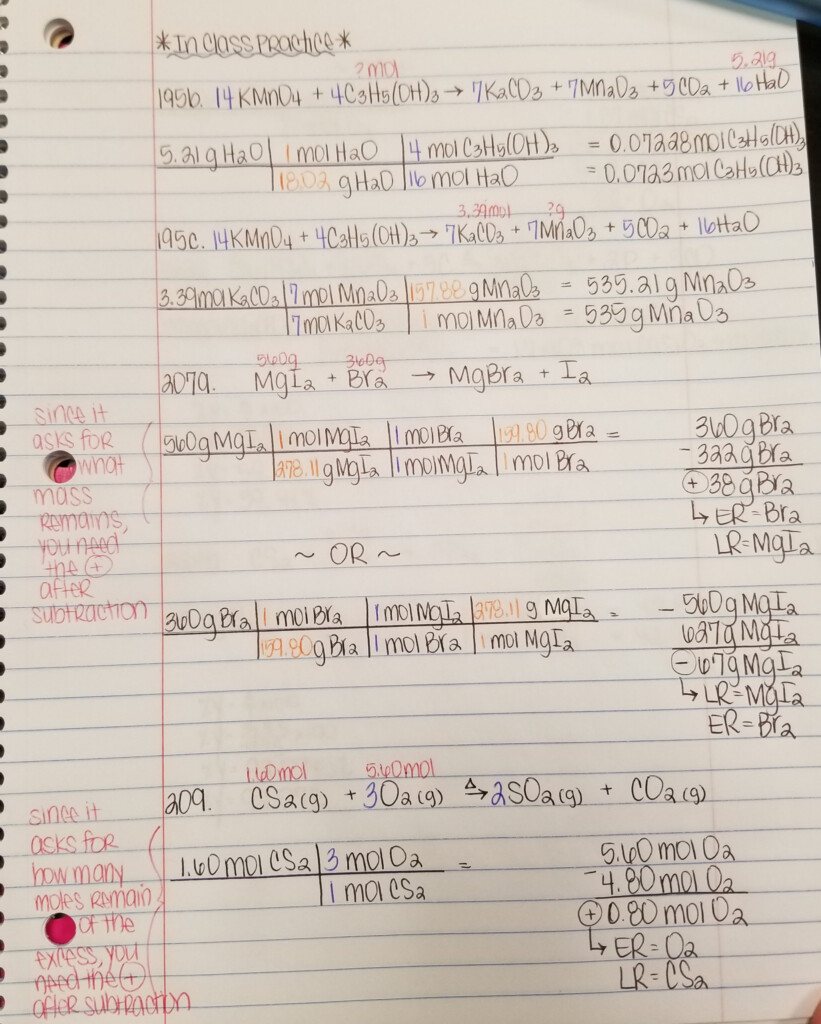 *In Class Practice*
?mol 5.21g
195b. 14KMnO4 + 4C3H5(OH)3 → 7K2CO3 + 7Mn2O3 + 5CO2 + 16H2O
5.21gH2O | 1molH2O | 4 molC3H5(OH)3 = 0.07228molC3H5(OH)3
18.02 gH2O | 16molH2O = 0.0723molC3H5(OH)3
3.39mol ?g
195c. 14KMnO4 + 4C3H5(OH)3 → 7K2CO3 + 7Mn2O3 + 5CO2 + 16H2O
3.39molK2CO3 | 7molMn2O3 | 157.88 gMn2O3 = 535.21gMn2O3
7molK2CO3 | 1 molMn2O3 = 535gMn2O3
560g 360g
207a. MgI2 + Br2 → MgBr2 + I2
since it
asks for
what
mass
remains,
you need
the (+)
after
subtraction
560gMgI2 | 1molMgI2 | 1molBr2 | 159.80 gBr2 = 360gBr2
278.11gMgI2 | 1molMgI2 | 1molBr2 -322gBr2
(+)38gBr2
↳ER=Br2
LR=MgI2
~ OR ~
360gBr2 | 1molBr2 | 1molMgI2 | 278.11 g MgI2 = - 560gMgI2
159.80gBr2 | 1molBr2 | 1molMgI2 627gMgI2
(-)67gMgI2
↳LR=MgI2
ER=Br2
1.60mol 5.60mol
209. CS2(g) + 3O2(g) Δ→ 2SO2(g) + CO2(g)
since it
asks for
how many
moles remain
of the
excess, you
need the (+)
after subtraction
1.60molCS2 | 3molO2 = 5.60molO2
1molCS2 -4.80molO2
(+)0.80molO2
↳ER=O2
LR=CS2